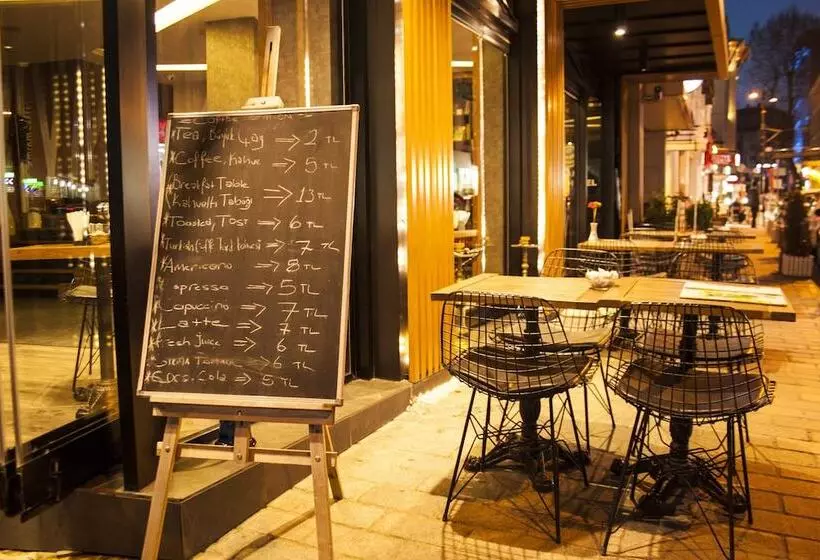 *Tea, Büyük Çay => 2 TL
*Coffee, Kahve => 5 TL
Breakfast Table
*Kahvaltı Tabağı => 13 TL
*Toasted, Tost => 6 TL
*Turkish Coffee Türk kahvesi => 7 TL
*Americano => 8 TL
Espresso => 5 TL
Capuccino => 7 TL
Latte => 7 TL
*Fresh Juice => 6 TL
=> 6 TL
Cola => 5 TL